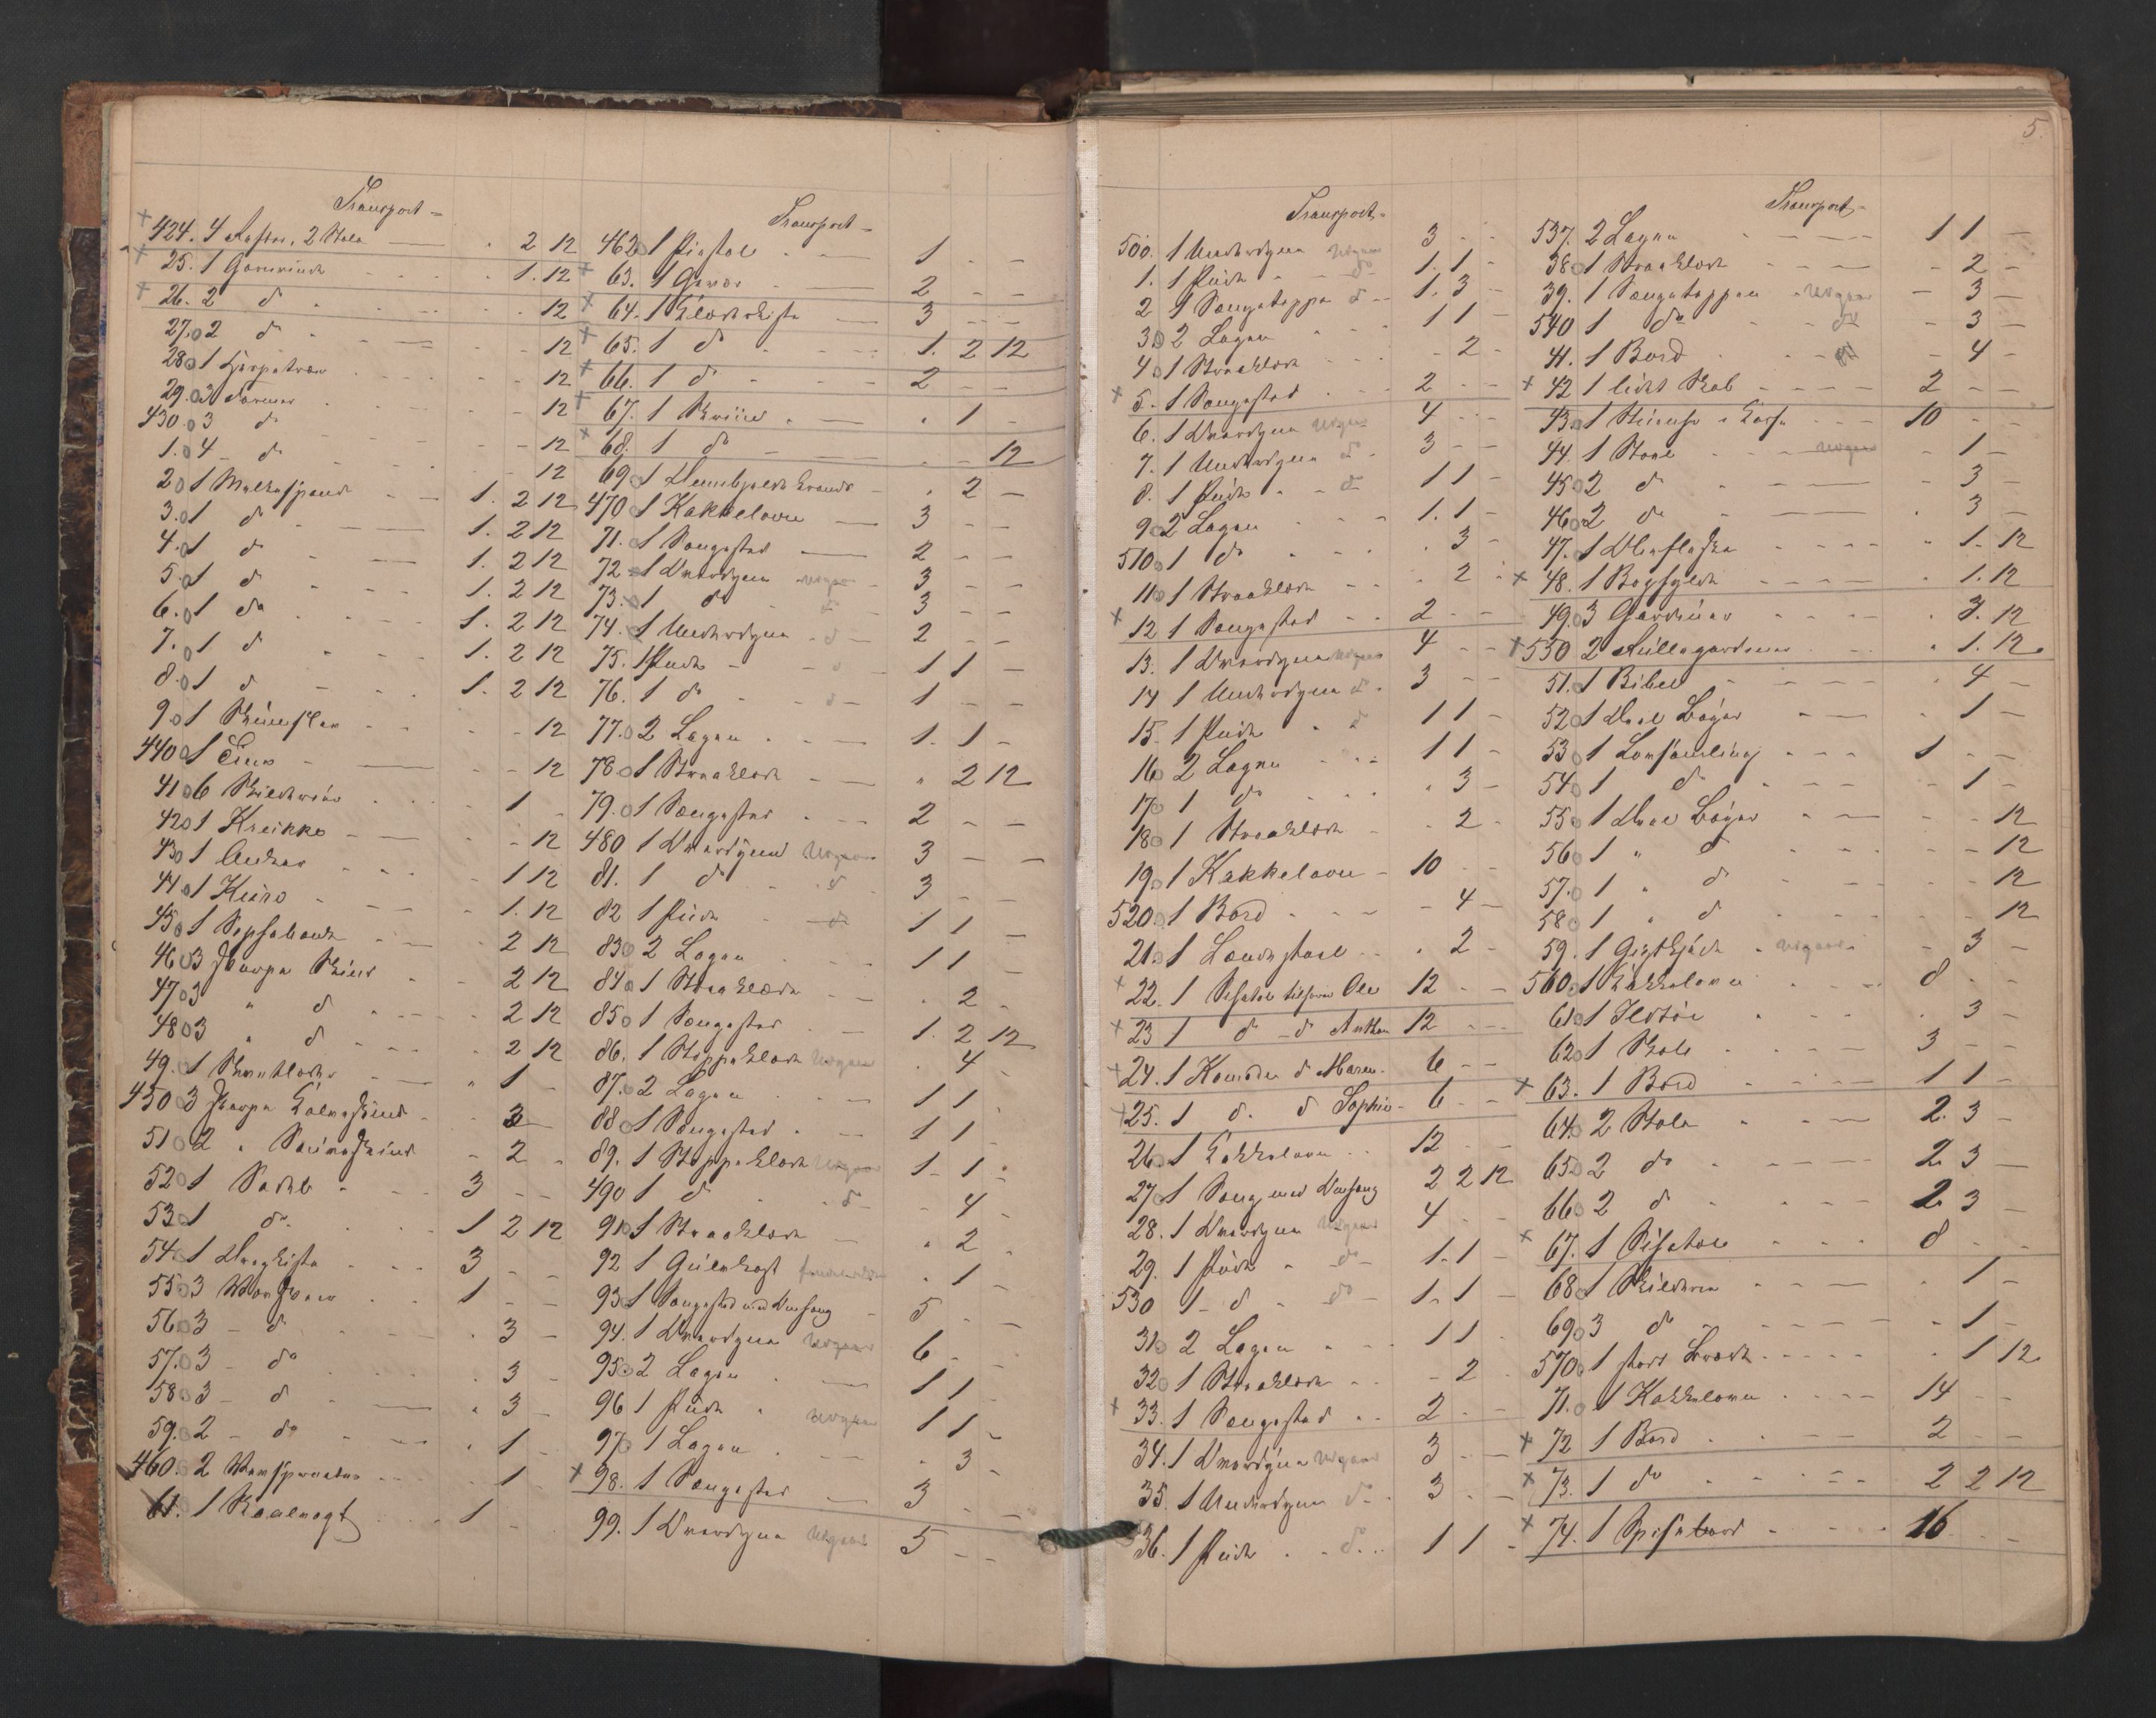 Transport =
+ 424. 4 2 Stole . 2 12
+ 25. 1 Garnvinde 1. 12
+ 26. 2 do 12
27. 2 do 12
28. 1 12
29. 3 12
430. 3 do 12
1. 4 do 12
2. 1 Melkespand 1. 2 12
3. 1 do 1. 2 12
4. 1 do 1. 2 12
5. 1 do 1. 2 12
6. 1 do 1. 2 12
7. 1 do 1. 2 12
8. 1 do 1. 2 12
9. 1 12
440 1 12
41 6 1
42 1 12
43 1 Anker 1 12
44 1 1. 12
45 1 2 12
46 3 2 12
47 3 " do 2 12
48 3 " do 2 12
49. 1 " 1
450 3 3
51 2 2
52 1 3
53. 1 do 1 2 12
54 1 3
55 3 1
56. 3 do 3
57. 3 do 3
58 3 do 3
59. 2 do 1
460. 2 1
61. 1 1
Transport =
462 1 1
+ 63. 1 2
+ 64. 1 3
+ 65. 1 do 1. 2 12
+ 66. 1 do 2
+ 67. 1 Skriin 1
+ 68. 1 do 12
69 1 2
470 1 Kakkelovn 3
71. 1 Sengested 2
72 1 Overdyne 3
73. 1 do do 3
74. 1 Underdyne do 2
75. 1 Pude do 1 1
76. 1 do do 1
77. 2 Lagen 1. 1
78 1 Straaklæde " 2 12
79. 1 Sengested 2
480 1 Overdyne Udgaar 3
81. 1 do do 3
82 1 Pude do 1 1
83 2 Lagen 1 1
84 1 Straaklæde 2
85 1 Sengested 1. 2 12
86. 1 Stoppeklæde Udgaar 4
87. 2 Lagen 1 1
88 1 Sengested 1 1
89. 1 Stoppeklæde Udgaar 1 1
490 1 do do 4
91 1 Straaklæde 2
92 1 1
93 1 Sengested med Omhæng 5
94. 1 Overdyne Udgaar 6
95 2 Lagen 1 1
96 1 Pude Udgaar 1 1
97 1 Lagen 3
+ 98. 1 Sengested 3
99. 1 Overdyne Udgaar 5
5.
Transport =
500. 1 Underdyne Udgaar 3
1. 1 Pude do 1. 1
2 1 Sengeteppe do 1. 3
3 2 Lagen 1 1
4 1 Straaklæde 2
+ 5. 1 Sengested 2
6. 1 Overdyne Udgaar 4
7. 1 Underdyne do 3
8. 1 Pude do 1 1
9 2 Lagen 1. 1
510 1 do 3
11 1 Straaklæde 2
+ 12 1 Sengested 2
13. 1 Overdyne Udgaar 4
14 1 Underdyne do 3
15. 1 Pude do 1 1
16 2 Lagen 1 1
17 1 do 3
18 1 Straaklæde 2
19. 1 Kakkelovn 10
520. 1 Bord 4
21. 1 Lænestoel 2
+ 22. 1 Ole 12
+ 23 1 do do Anthon 12
+ 24. 1 Komode do Maren 6
+ 25. 1 do do Sophie 6
26. 1 Kakkelovn 12
27 1 Seng med Omhæng 2 2 12
28. 1 Overdyne Udgaar 4
29. 1 Pude do 1. 1
530 1 do do 1. 1
31 2 Lagen 1 1
32 1 Straaklæde 2
+ 33. 1 Sengested 2
34. 1 Overdyne Udgaar 3
35. 1 Underdyne do 3
36. 1 Pude do 1 1
Transport =
537. 2 Lagen 1 1
38 1 Straaklæde 2
39. 1 Sengeteppen Udgaar 3
540 1 do do 3
41. 1 Bord 4
+ 42 1 lidet Skab 2
43. 1 10
44. 1 Stoel Udgaar 1
45 2 do 3
46 2 do 3
47. 1 1. 12
+ 48. 1 Boghylde 1. 12
49. 3 Gardiner 3. 12
+ 550 2 Rullegardiner 1. 12
51. 1 Bibel 4
52. 1 Deel Bøger 1
53 1 Lovsamling 1
54. 1 do 1
55. 1 Deel Bøger 12
56. 1 " do 12
57. 1 " do 12
58 1 " do 12
59. 1 Udgaar 3
560. 1 Kakkelovn 8
61 1 3
62 1 3
+ 63. 1 Bord 1 1
64. 2 Stole 2. 3
65 2 do 2. 3
66 2 do 2. 3
+ 67. 1 8
68 1 1
69 3 do 1
570. 1 stort 1 12
71. 1 Kakkelovn 14
+ 72 1 Bord 2
+ 73. 1 do 2 2 12
+ 74. 1 Spisebord 16